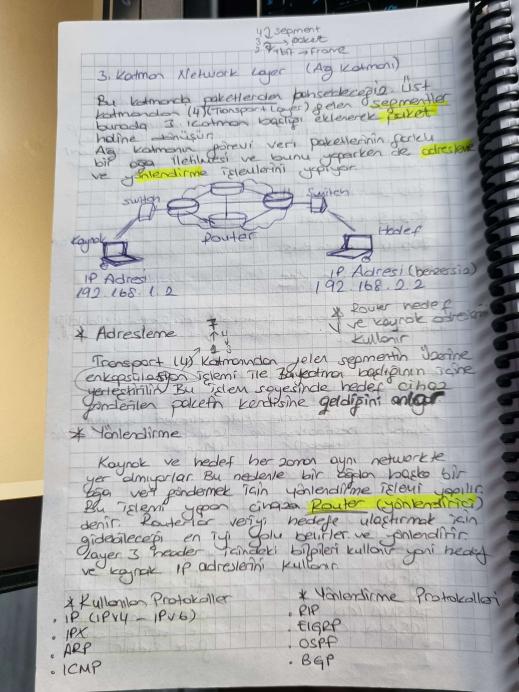 4) segment
3 → paket
2 → bit → frame
3. Katman Network Layer (Ağ Katmanı)
Bu katmanda paketlerden bahsedeceğiz. Üst
katmandan (4)(Transport Layer) gelen segmentler
burada 3. katman başlığı eklenerek Paket
haline dönüşür.
Ağ katmanın görevi veri paketlerinin farklı
bir ağa iletilmesi ve bunu yaparken de adresleme
ve yönlendirme işlevlerini yapıyor.
switch
switch
Kaynak
Router
Hedef
IP Adresi
192.168.1.2
IP Adresi (benzersiz)
192.168.2.2
* Router hedef
ve kaynak adresini
kullanır
* Adresleme
Transport (4) katmanından gelen segmentin üzerine
enkapsülasyon işlemi ile katman başlığının içine
yerleştirilir. Bu işlem sayesinde hedef cihaz
gönderilen paketin kendisine geldiğini anlar
* Yönlendirme
Kaynak ve hedef her zaman aynı networkte
yer almıyorlar. Bu nedenle bir ağdan başka bir
ağa veri göndermek için yönlendirme işlevi yapılır.
Bu işlemi yapan cihaza Router (yönlendirici)
denir. Routerlar veriyi hedefe ulaştırmak için
gidebileceği en iyi yolu belirler ve yönlendirir
Layer 3 header içindeki bilgileri kullanır yani hedef
ve kaynak IP adreslerini kullanır.
* Kullanılan Protokoller
• IP (IPv4 - IPv6)
• IPX
• ARP
• ICMP
* Yönlendirme Protokolleri
• RIP
• EIGRP
• OSPF
• BGP